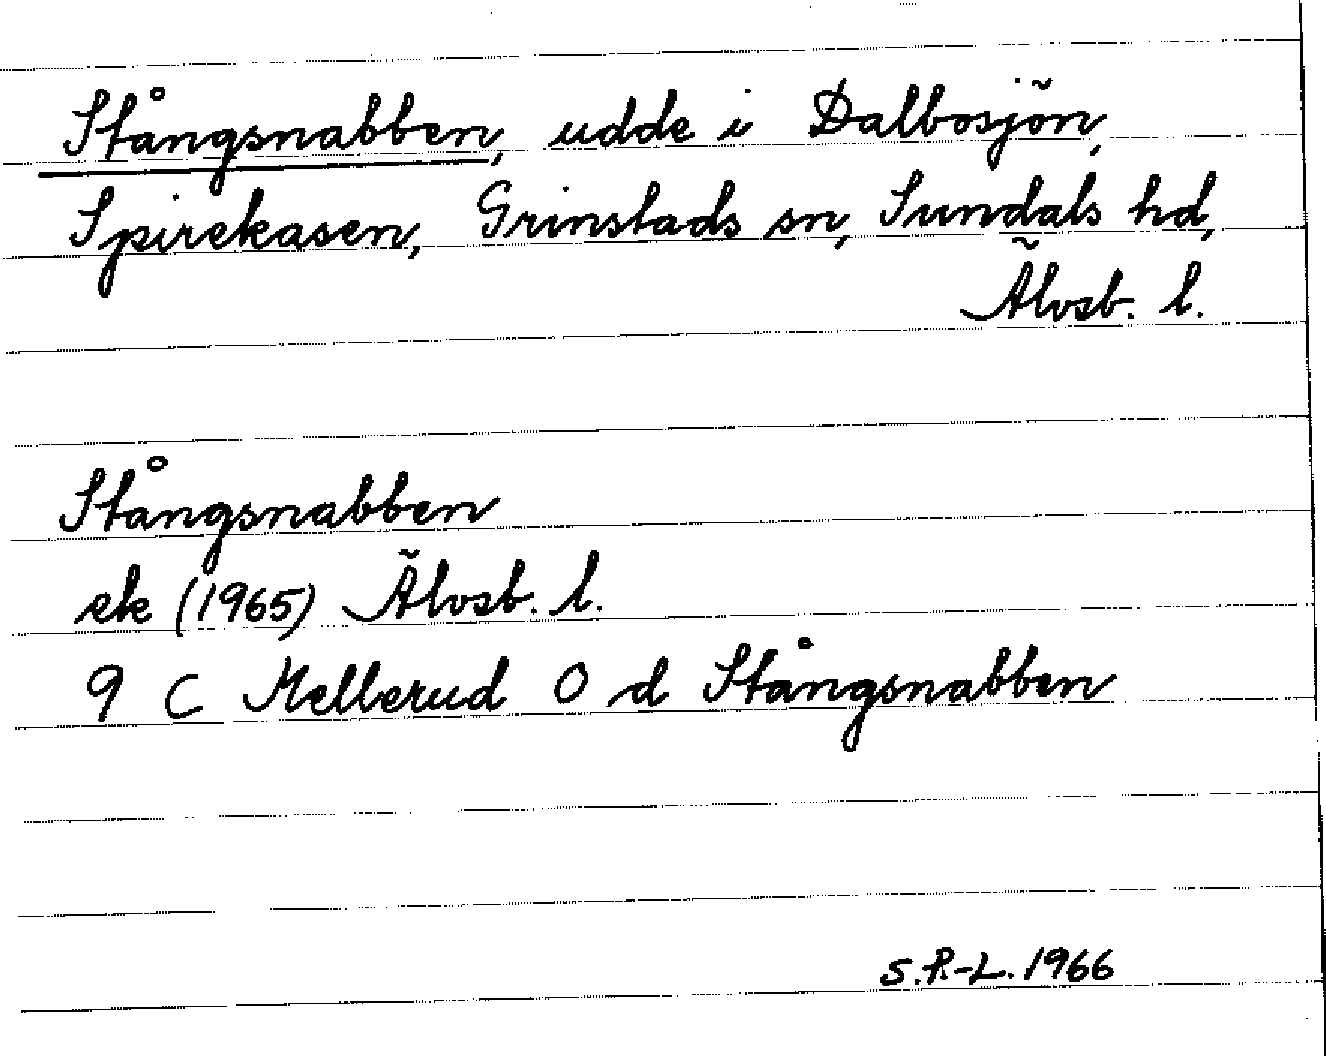 Stångsnabben, udde i Dalbosjön,
Spirekasen, Grinstads sn, Sundals hd,
Älvsb. l.
Stångsnabben
ek (1965) Älvsb. l.
9 C Mellerud O d Stångsnabben
S.P.-L. 1966